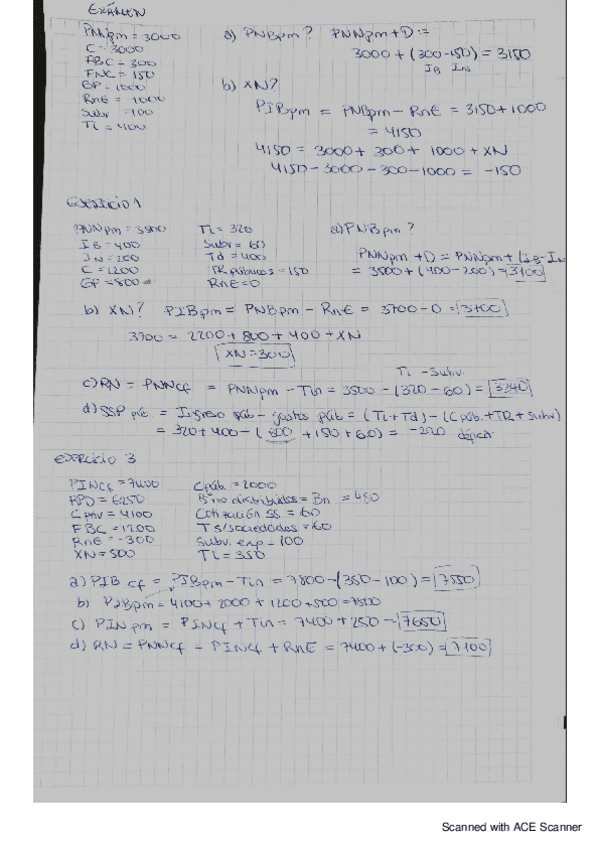 EXÁMEN
PNNpm = 3000
C = 3000
FBC = 300
FNC = 150
GP = 1000
RnE = -1000
Subv = 100
Ti = 400
a) PNBpm? PNNpm + D =
3000 + (300 - 150) = 3150
IB IN
b) XN?
PIBpm = PNBpm - RnE = 3150 + 1000
= 4150
4150 = 3000 + 300 + 1000 + XN
4150 - 3000 - 300 - 1000 = -150
Ejercicio 1
PNNpm = 3500
IB = 400
IN = 200
C = 2200
GP = 800
Ti = 320
Subv = 60
Td = 400
TR públicas = 150
RnE = 0
a) PNBpm?
PNNpm + D = PNNpm + (IB - IN
= 3500 + (400 - 200) = 3700
b) XN? PIBpm = PNBpm - RnE = 3700 - 0 = 3700
3700 = 2200 + 800 + 400 + XN
XN = 300
Ti - Subv.
c) RN = PNNcf = PNNpm - Tin = 3500 - (320 - 60) = 3240
d) SSP púb = Ingreso púb - gastos púb = (Ti + Td) - (Cpúb + TR + Subv)
= 320 + 400 - (800 + 150 + 60) = -220 déficit
EXERCICIO 3
PINcf = 7400
RPD = 6250
Cpriv = 4100
FBC = 1200
RnE = -300
XN = 500
Cpúb = 2000
Bº no distribuidos = Bn = 450
Cotización SS = 60
Ts/sociedades = 60
Subv. exp - 100
Ti = 350
a) PIBcf = PIBpm - Tin = 7800 - (350 - 100) = 7550
b) PIBpm = 4100 + 2000 + 1200 + 500 = 7800
c) PINpm = PINcf + Tin = 7400 + 250 = 7650
d) RN = PNNcf = PINcf + RnE = 7400 + (-300) = 7100
Scanned with ACE Scanner